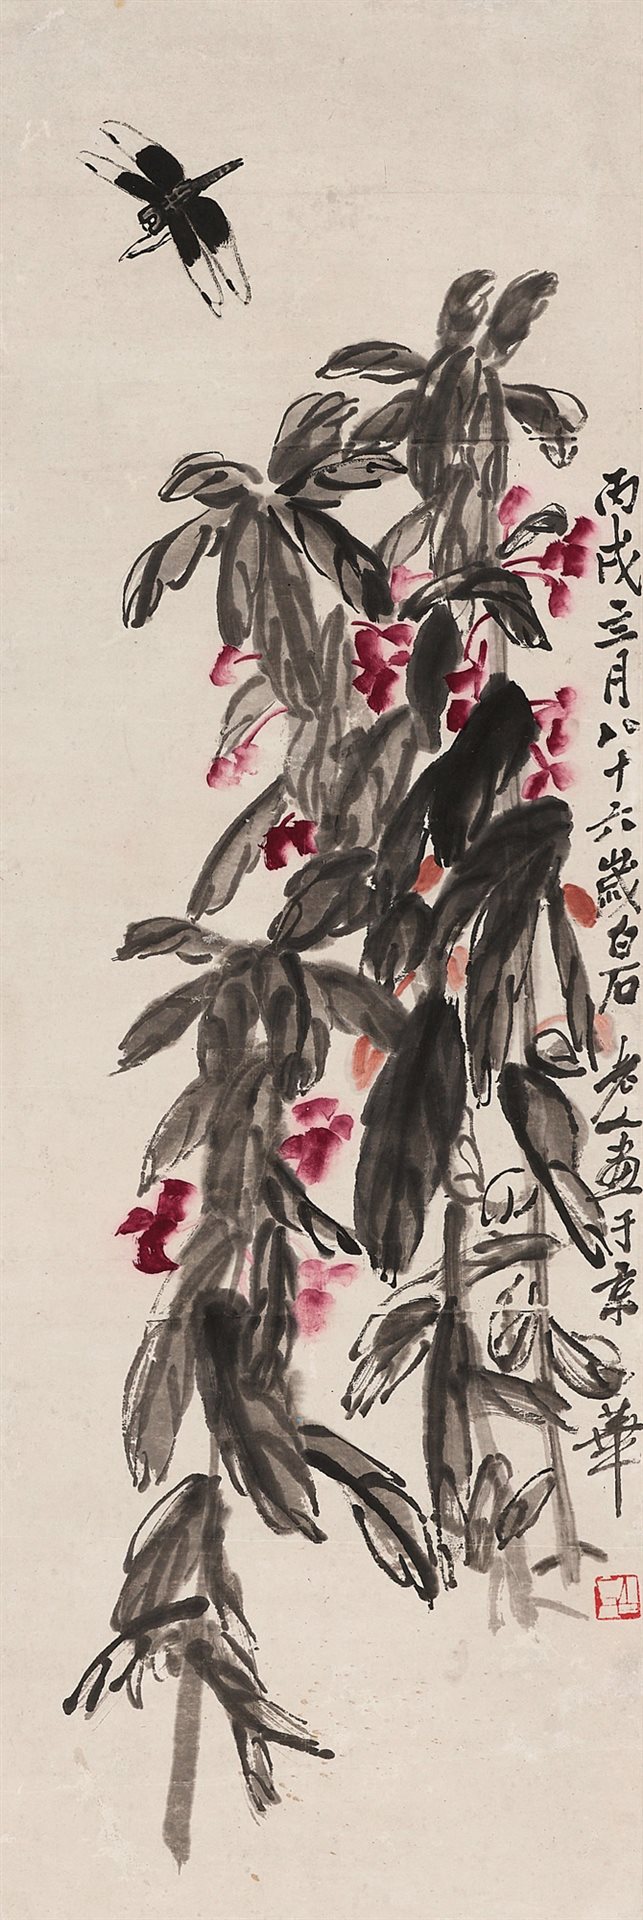 丙戌三月八十六歲白石老人畫于京華